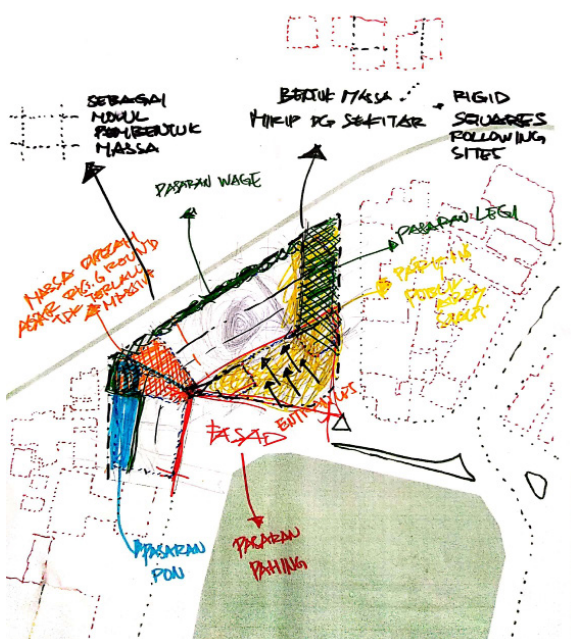 SEBAGAI
MODUL
PEMBENTUK
MASSA
BENTUK MASSA
MIRIP DG SEKITAR
RIGID
SQUARES
FOLLOWING
SITES
PASARAN WAGE
PASARAN LEGI
MASSA DIPECAH
AGAR BIG. GROUND
TDK TERLALU
MASSIVE
PARKING
PUBLIK
ENTRANCE
FASAD
PASARAN
PON
PASARAN
PAHING